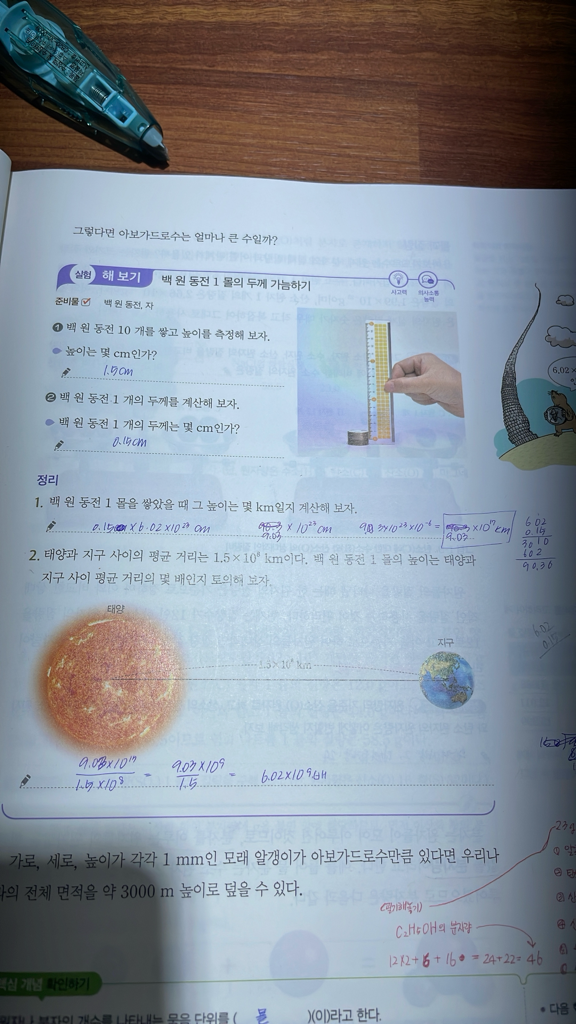 그렇다면 아보가드로수는 얼마나 큰 수일까?
실험 해 보기 백 원 동전 1 몰의 두께 가늠하기
사고력 의사소통 능력
준비물 백 원 동전, 자
❶ 백 원 동전 10 개를 쌓고 높이를 측정해 보자.
높이는 몇 cm인가?
1.5cm
❷ 백 원 동전 1 개의 두께를 계산해 보자.
백 원 동전 1 개의 두께는 몇 cm인가?
0.15cm
6.02×
정리
1. 백 원 동전 1 몰을 쌓았을 때 그 높이는 몇 km일지 계산해 보자.
0.15 × 6.02×10²³ cm 9.03 ×10²³ cm 9.03 ×10¹⁷ km
6.02
0.15
3010
602
90.30
2. 태양과 지구 사이의 평균 거리는 1.5×10⁸ km이다. 백 원 동전 1 몰의 높이는 태양과
지구 사이 평균 거리의 몇 배인지 토의해 보자.
태양
지구
1.5×10⁸ km
9.03×10¹⁷ / 1.5×10⁸ = 9.03×10⁹ / 1.5 = 6.02×10⁹배
가로, 세로, 높이가 각각 1 mm인 모래 알갱이가 아보가드로수만큼 있다면 우리나
라의 전체 면적을 약 3000 m 높이로 덮을 수 있다.
C₂H₅OH의 분자량
12×2+6+16 = 24+22= 46
핵심 개념 확인하기
원자나 분자의 개수를 나타내는 묶음 단위를 ( 몰 )(이)라고 한다.
• 다음